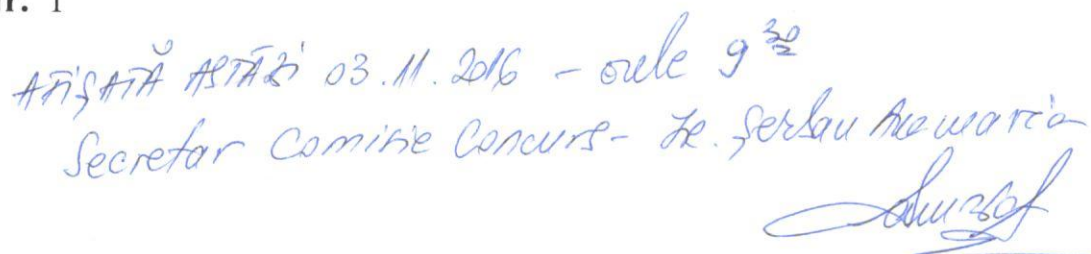 r. 1
AFIȘATĂ ASTĂZI 03.11.2016 - orele 9 30
Secretar Comisie Concurs - Șerban Anamaria